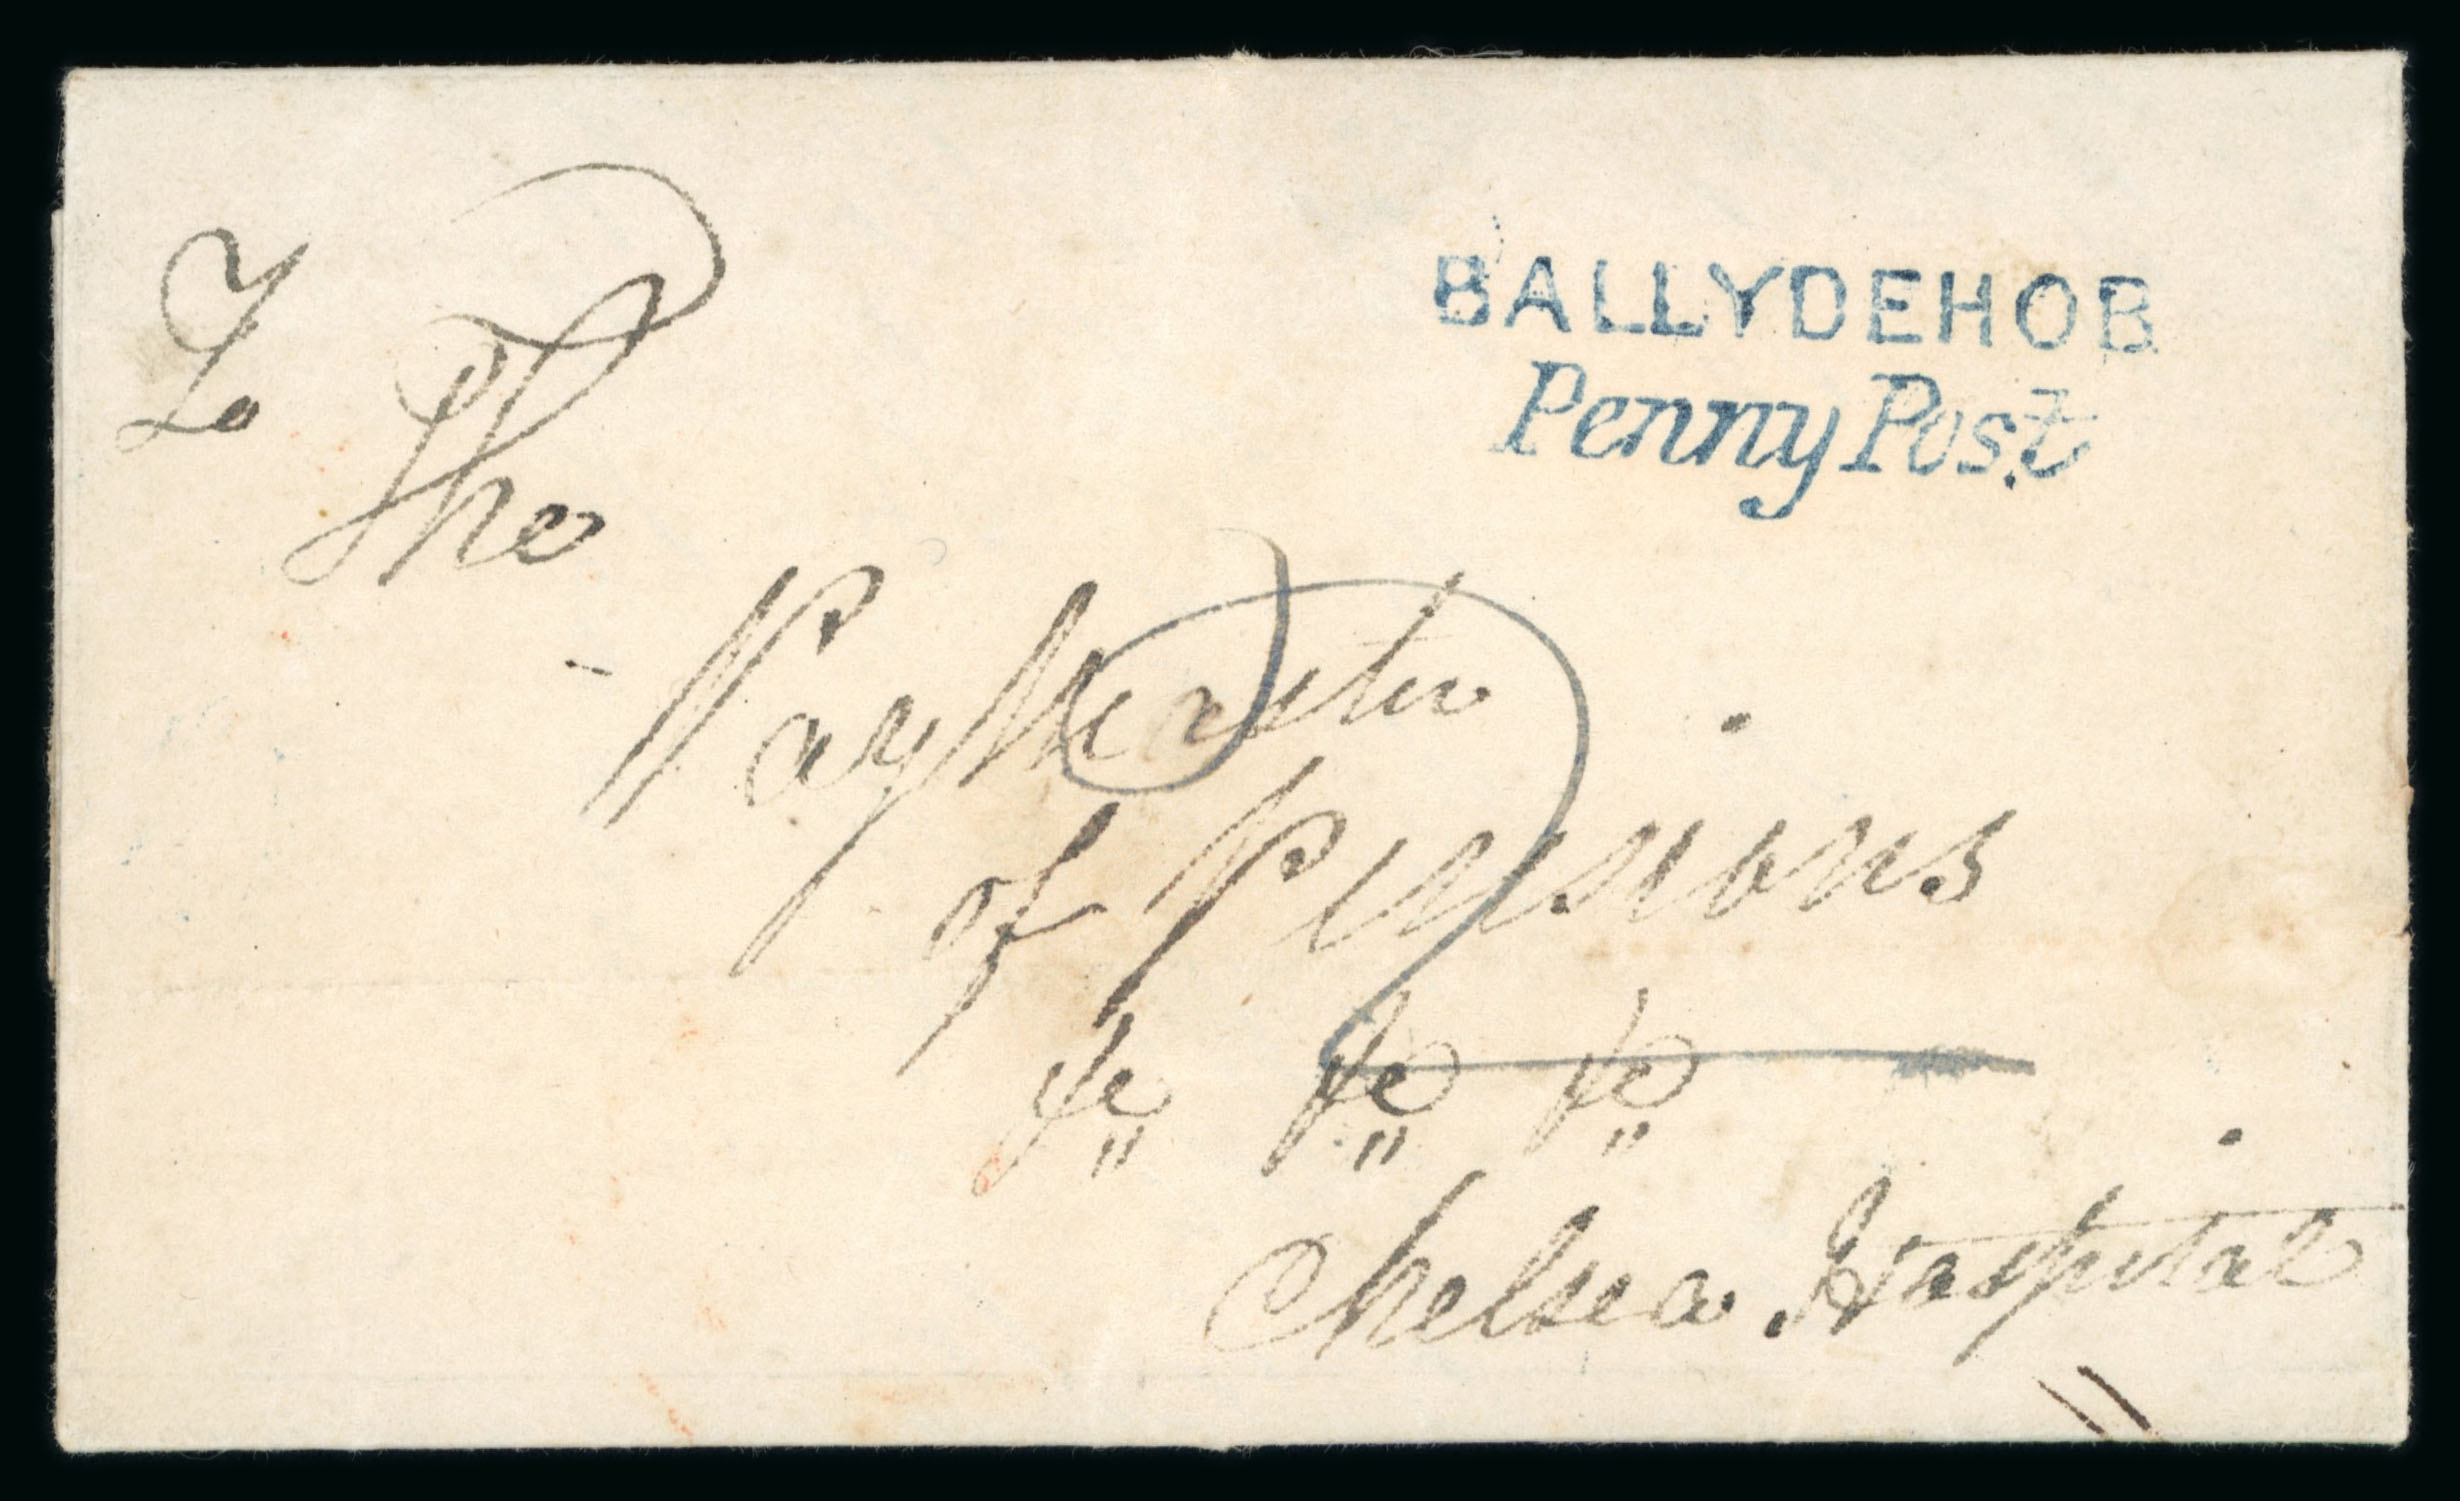 BALLYDEHOB
Penny Post
To
The
Pay Master
of Pensions
&c &c &c
Chelsea Hospital
2